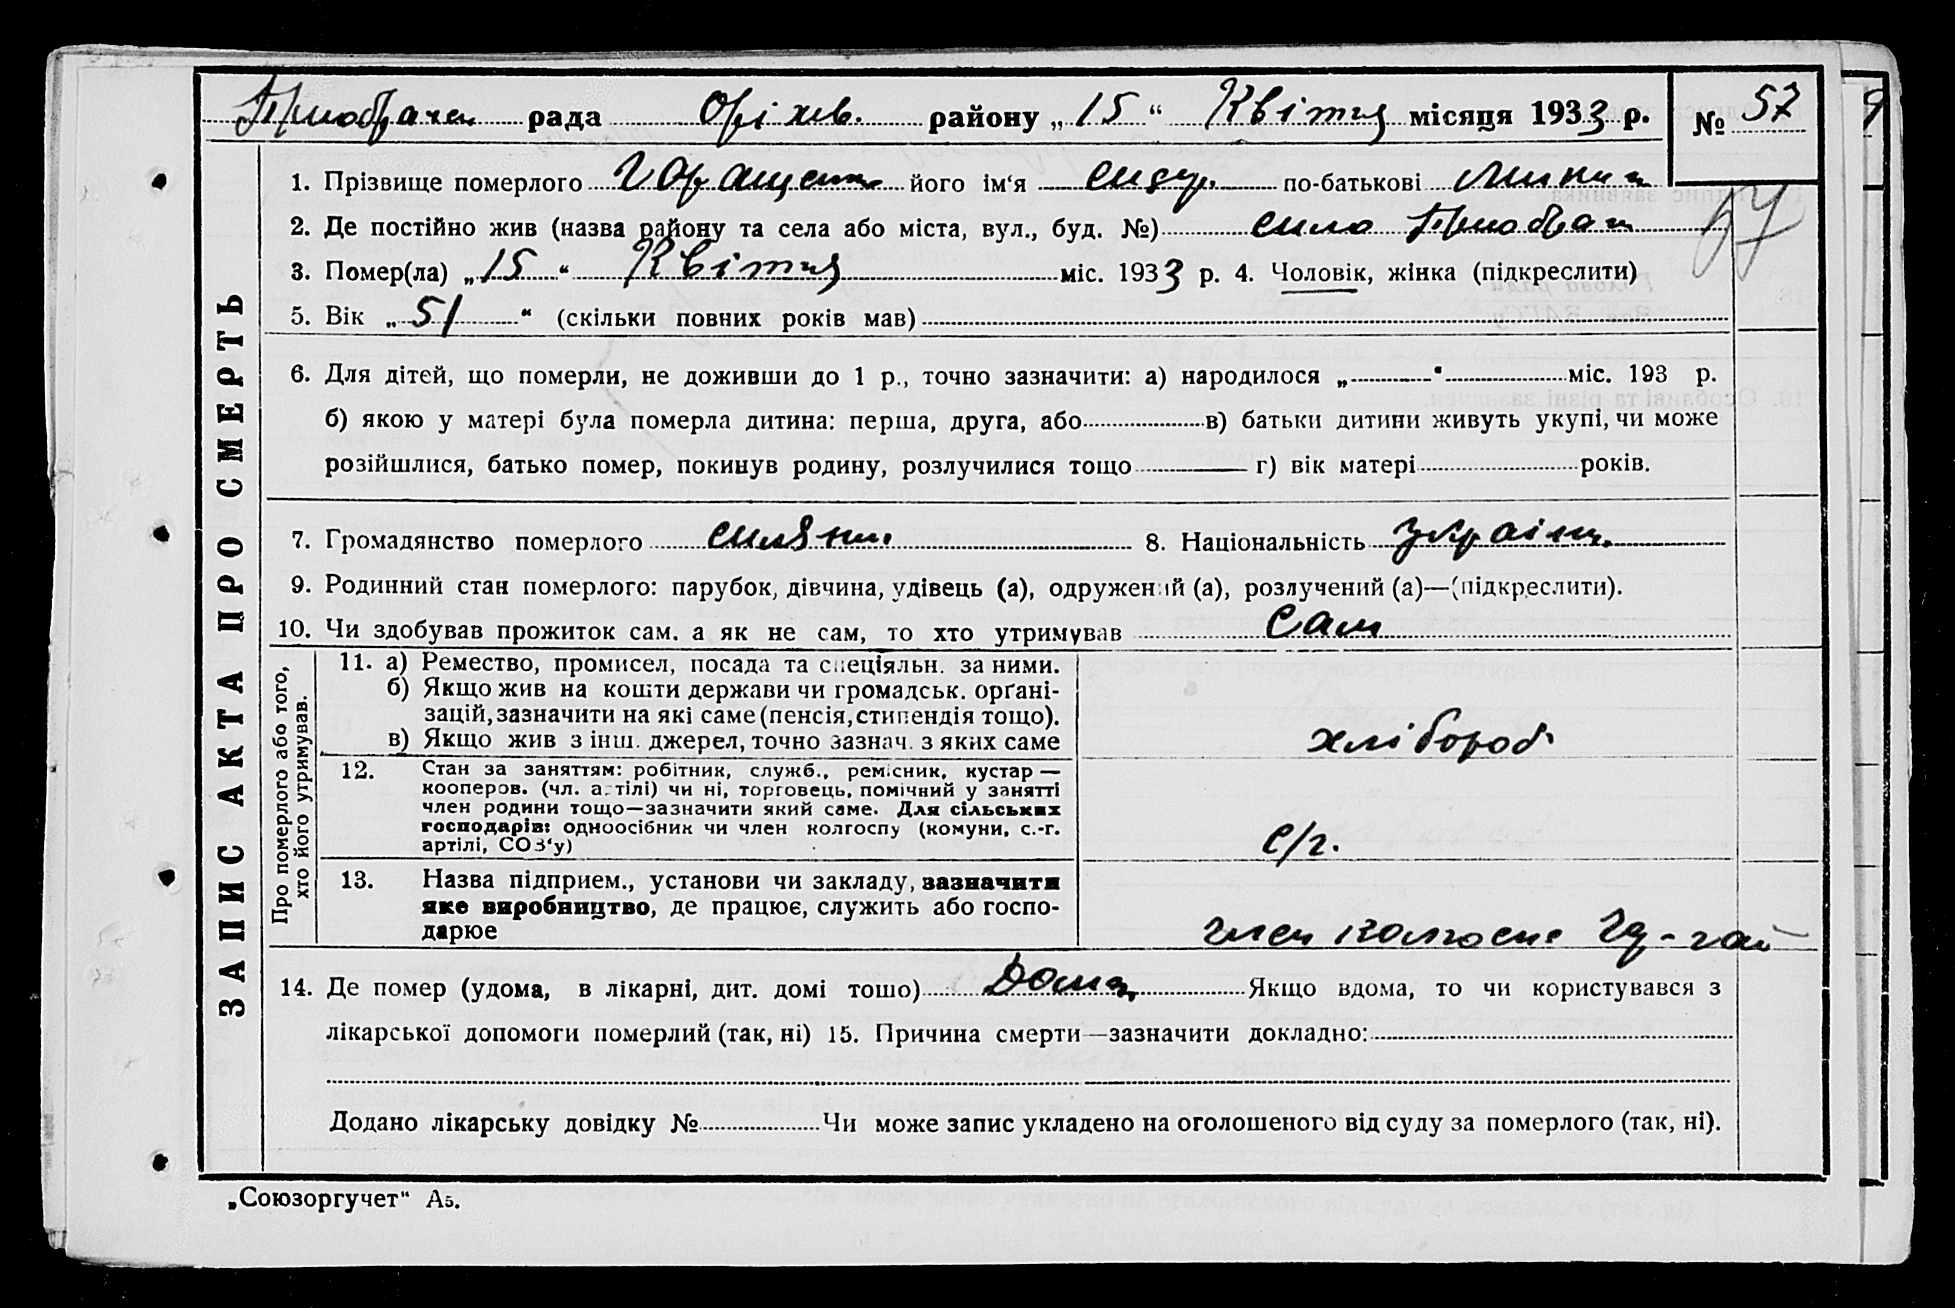 Приображен рада Оріхів. району „15“ Квітня місяця 1933 р. № 57
1. Прізвище померлого Горащенко його ім‘я Сидір по-батькові
2. Де постійно жив (назва району та села або міста, вул., буд. №) село Приображ 57
3. Помер(ла) „15“ Квітня міс. 1933 р. 4. Чоловік, жінка (підкреслити)
5. Вік „51“ (скільки повних років мав)
6. Для дітей, що померли, не доживши до 1 р., точно зазначити: а) народилося „ “ міс. 193 р.
б) якою у матері була померла дитина: перша, друга, або в) батьки дитини живуть укупі, чи може
розійшлися, батько помер, покинув родину, розлучилися тощо г) вік матері років.
7. Громадянство померлого селянин 8. Національність україн.
9. Родинний стан померлого: парубок, дівчина, удівець (а), одружений (а), розлучений (а)—(підкреслити).
10. Чи здобував прожиток сам. а як не сам, то хто утримував Сам
ЗАПИС АКТА ПРО СМЕРТЬ
Про померлого або того,
хто його утримував.
11. а) Ремество, промисел, посада та спеціяльн. за ними.
б) Якщо жив на кошти держави чи громадськ. орґані-
зацій, зазначити на які саме (пенсія, стипендія тощо).
в) Якщо жив з інш. джерел, точно зазнач. з яких саме
хлібороб
12. Стан за заняттям: робітник, служб., ремісник, кустар —
кооперов. (чл. артілі) чи ні, торговець, помічний у занятті
член родини тощо—зазначити який саме. Для сільських
господарів: одноосібник чи член колгоспу (комуни, с.-г.
артілі, СОЗ‘у)
с/г.
13. Назва підприєм., установи чи закладу, зазначити
яке виробництво, де працює, служить або госпо-
дарює
член колгоспу
14. Де помер (удома, в лікарні, дит. домі тошо) Дома Якщо вдома, то чи користувався з
лікарської допомоги померлий (так, ні) 15. Причина смерти—зазначити докладно:
Додано лікарську довідку № Чи може запис укладено на оголошеного від суду за померлого (так, ні).
„Союзоргучет“ А5.